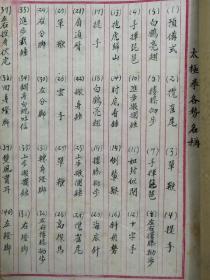 太極拳各勢名稱
(1)預備式 (2)攬雀尾 (3)單鞭 (4)提手
(5)白鶴亮翅 (6)摟膝拗步 (7)手揮琵琶 (8)左右摟膝拗步
(9)手揮琵琶 (10)進步搬攔錘 (11)如封似閉 (12)十字手
(13)抱虎歸山 (14)肘底看錘 (15)倒攆猴 (16)斜飛勢
(17)提手 (18)白鶴亮翅 (19)摟膝拗步 (20)海底針
(21)扇通臂 (22)撇身錘 (23)上步搬攔錘 (24)攬雀尾
(25)單鞭 (26)雲手 (27)單鞭 (28)高探馬
(29)右分腳 (30)左分腳 (31)轉身蹬腳 (32)左右摟膝拗步
(33)進步栽錘 (34)翻身白蛇吐信 (35)上步搬攔錘 (36)右蹬腳
(37)左右披身伏虎 (38)回身蹬腳 (39)雙風貫耳 (40)左蹬腳